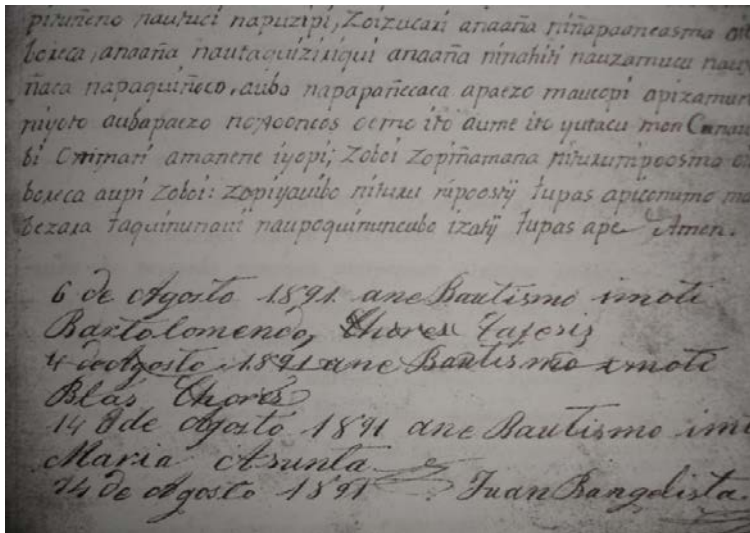 pituñeno nautuci napuzipi, Zoizucari anaaña niñapaancasma
boxeca, anaaña nautaquiziriqui anaaña ninahiti nauzamucu
ñaca napaquiñoco, auba napapañeccaca apaezo maucopi
niyoto aubapaezo noxooncos oemo ito aume ito yutacu mon
bi Crimari amanene iyopi; Zoboi zopiñamana
boxeca aupi Zoboi: Zopiyauibo nituxu nipoostij tupas apiconumo
bezara taquinunaui naupoquinuncubo izatij tupas ape Amen.
6 de Agosto 1891 ane Bautismo imoti
Bartolomendo, Chores
4 de Agosto 1891 ane Bautismo imoti
Blas Chores
14 de Agosto 1891 ane Bautismo
Maria Asunta
14 de Agosto 1891 Juan Bangelista